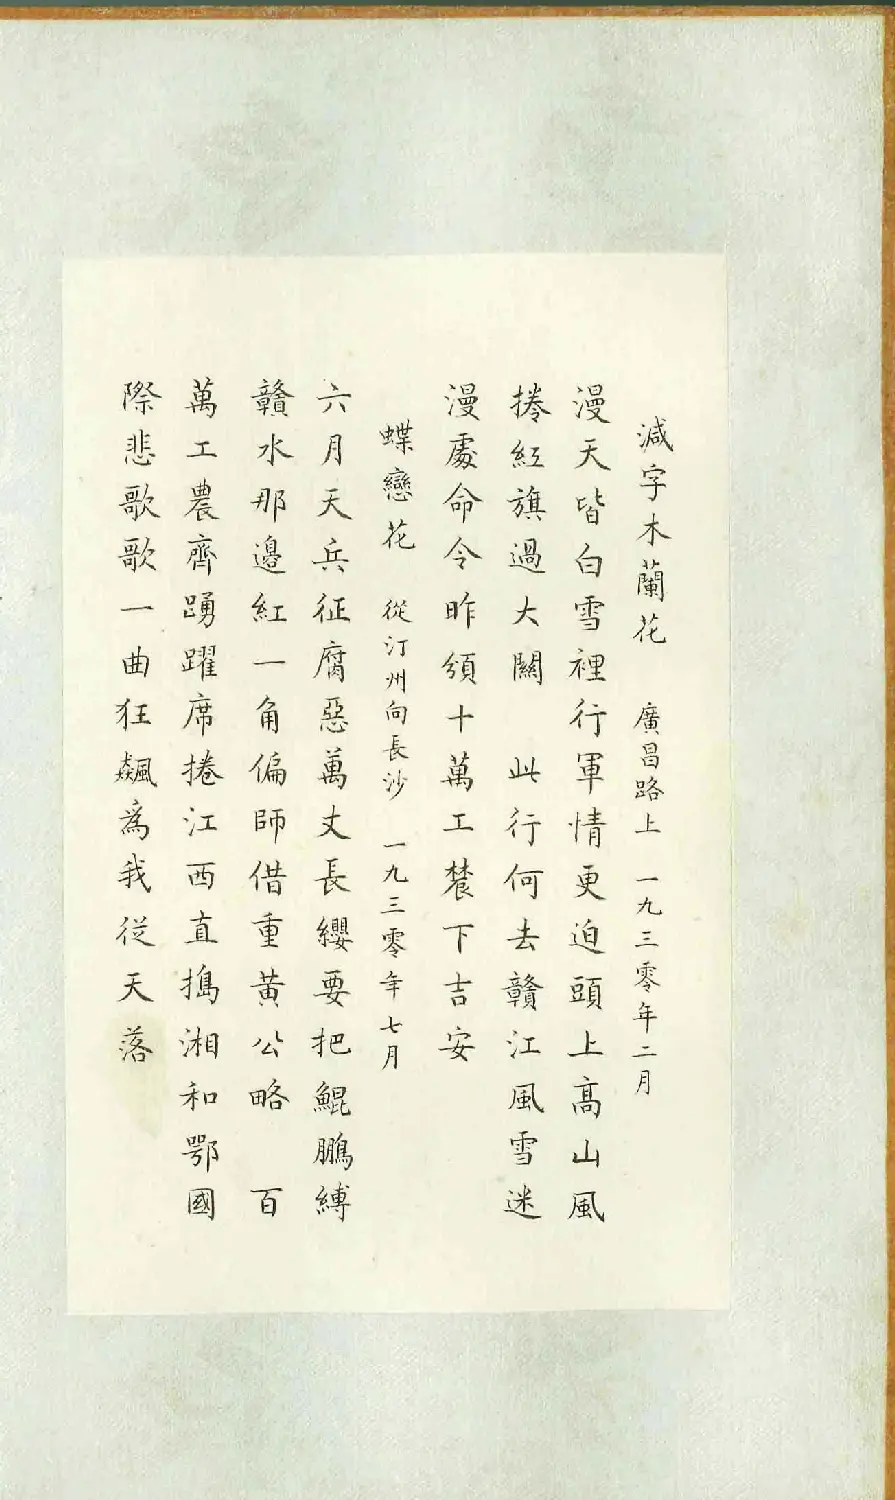 減字木蘭花 廣昌路上 一九三零年二月
漫天皆白雪裡行軍情更迫頭上高山風
捲紅旗過大關 此行何去贛江風雪迷
漫處命令昨頒十萬工農下吉安
蝶戀花 從汀州向長沙 一九三零年七月
六月天兵征腐惡萬丈長纓要把鯤鵬縛
贛水那邊紅一角偏師借重黃公略 百
萬工農齊踴躍席捲江西直搗湘和鄂國
際悲歌歌一曲狂飆為我從天落